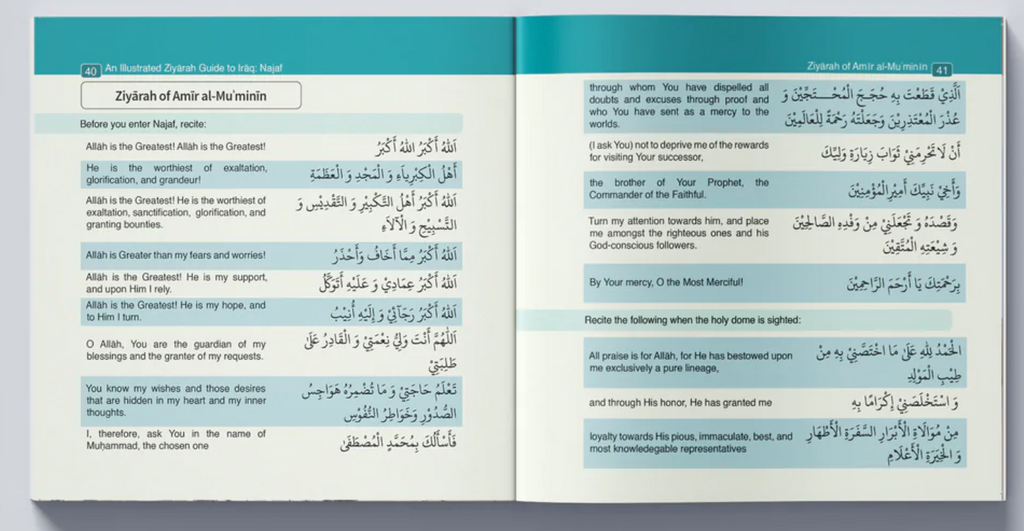 40 An Illustrated Ziyārah Guide to Irāq: Najaf
Ziyārah of Amīr al-Mu'minīn
Before you enter Najaf, recite:
Allāh is the Greatest! Allāh is the Greatest!
اَللّٰهُ أَكْبَرُ اَللّٰهُ أَكْبَرُ
He is the worthiest of exaltation,
glorification, and grandeur!
أَهْلُ الْكِبْرِيَاءِ وَ الْمَجْدِ وَ الْعَظَمَةِ
Allāh is the Greatest! He is the worthiest of
exaltation, sanctification, glorification, and
granting bounties.
اَللّٰهُ أَكْبَرُ أَهْلُ التَّكْبِيْرِ وَ التَّقْدِيْسِ وَ
التَّسْبِيْحِ وَ الْآلَاءِ
Allāh is Greater than my fears and worries!
اَللّٰهُ أَكْبَرُ مِمَّا أَخَافُ وَأَحْذَرُ
Allāh is the Greatest! He is my support,
and upon Him I rely.
اَللّٰهُ أَكْبَرُ عِمَادِيْ وَ عَلَيْهِ أَتَوَكَّلُ
Allāh is the Greatest! He is my hope, and
to Him I turn.
اَللّٰهُ أَكْبَرُ رَجَآئِيْ وَ إِلَيْهِ أُنِيْبُ
O Allāh, You are the guardian of my
blessings and the granter of my requests.
اَللّٰهُمَّ أَنْتَ وَلِيُّ نِعْمَتِيْ وَ الْقَادِرُ عَلٰى
طَلِبَتِيْ
You know my wishes and those desires
that are hidden in my heart and my inner
thoughts.
تَعْلَمُ حَاجَتِيْ وَ مَا تُضْمِرُهُ هَوَاجِسُ
الصُّدُوْرِ وَخَوَاطِرُ النُّفُوْسِ
I, therefore, ask You in the name of
Muḥammad, the chosen one
فَأَسْأَلُكَ بِمُحَمَّدٍ الْمُصْطَفٰى
Ziyārah of Amīr al-Mu'minīn 41
through whom You have dispelled all
doubts and excuses through proof and
who You have sent as a mercy to the
worlds.
اَلَّذِيْ قَطَعْتَ بِهِ حُجَجَ الْمُحْتَجِّيْنَ وَ
عُذْرَ الْمُعْتَذِرِيْنَ وَجَعَلْتَهُ رَحْمَةً لِلْعَالَمِيْنَ
(I ask You) not to deprive me of the rewards
for visiting Your successor,
أَنْ لَا تَحْرِمَنِيْ ثَوَابَ زِيَارَةِ وَلِيِّكَ
the brother of Your Prophet, the
Commander of the Faithful.
وَأَخِيْ نَبِيِّكَ أَمِيْرِ الْمُؤْمِنِيْنَ
Turn my attention towards him, and place
me amongst the righteous ones and his
God-conscious followers.
وَقَصْدَهُ وَ تَجْعَلَنِيْ مِنْ وَفْدِهِ الصَّالِحِيْنَ
وَ شِيْعَتِهِ الْمُتَّقِيْنَ
By Your mercy, O the Most Merciful!
بِرَحْمَتِكَ يَا أَرْحَمَ الرَّاحِمِيْنَ
Recite the following when the holy dome is sighted:
All praise is for Allāh, for He has bestowed upon
me exclusively a pure lineage,
اَلْحَمْدُ لِلّٰهِ عَلٰى مَا اخْتَصَّنِيْ بِهِ مِنْ
طِيْبِ الْمَوْلِدِ
and through His honor, He has granted me
وَ اسْتَخْلَصَنِيْ إِكْرَامًا بِهِ
loyalty towards His pious, immaculate, best, and
most knowledegable representatives
مِنْ مُوَالَاةِ الْأَبْرَارِ السَّفَرَةِ الْأَطْهَارِ
وَ الْخِيَرَةِ الْأَعْلَامِ